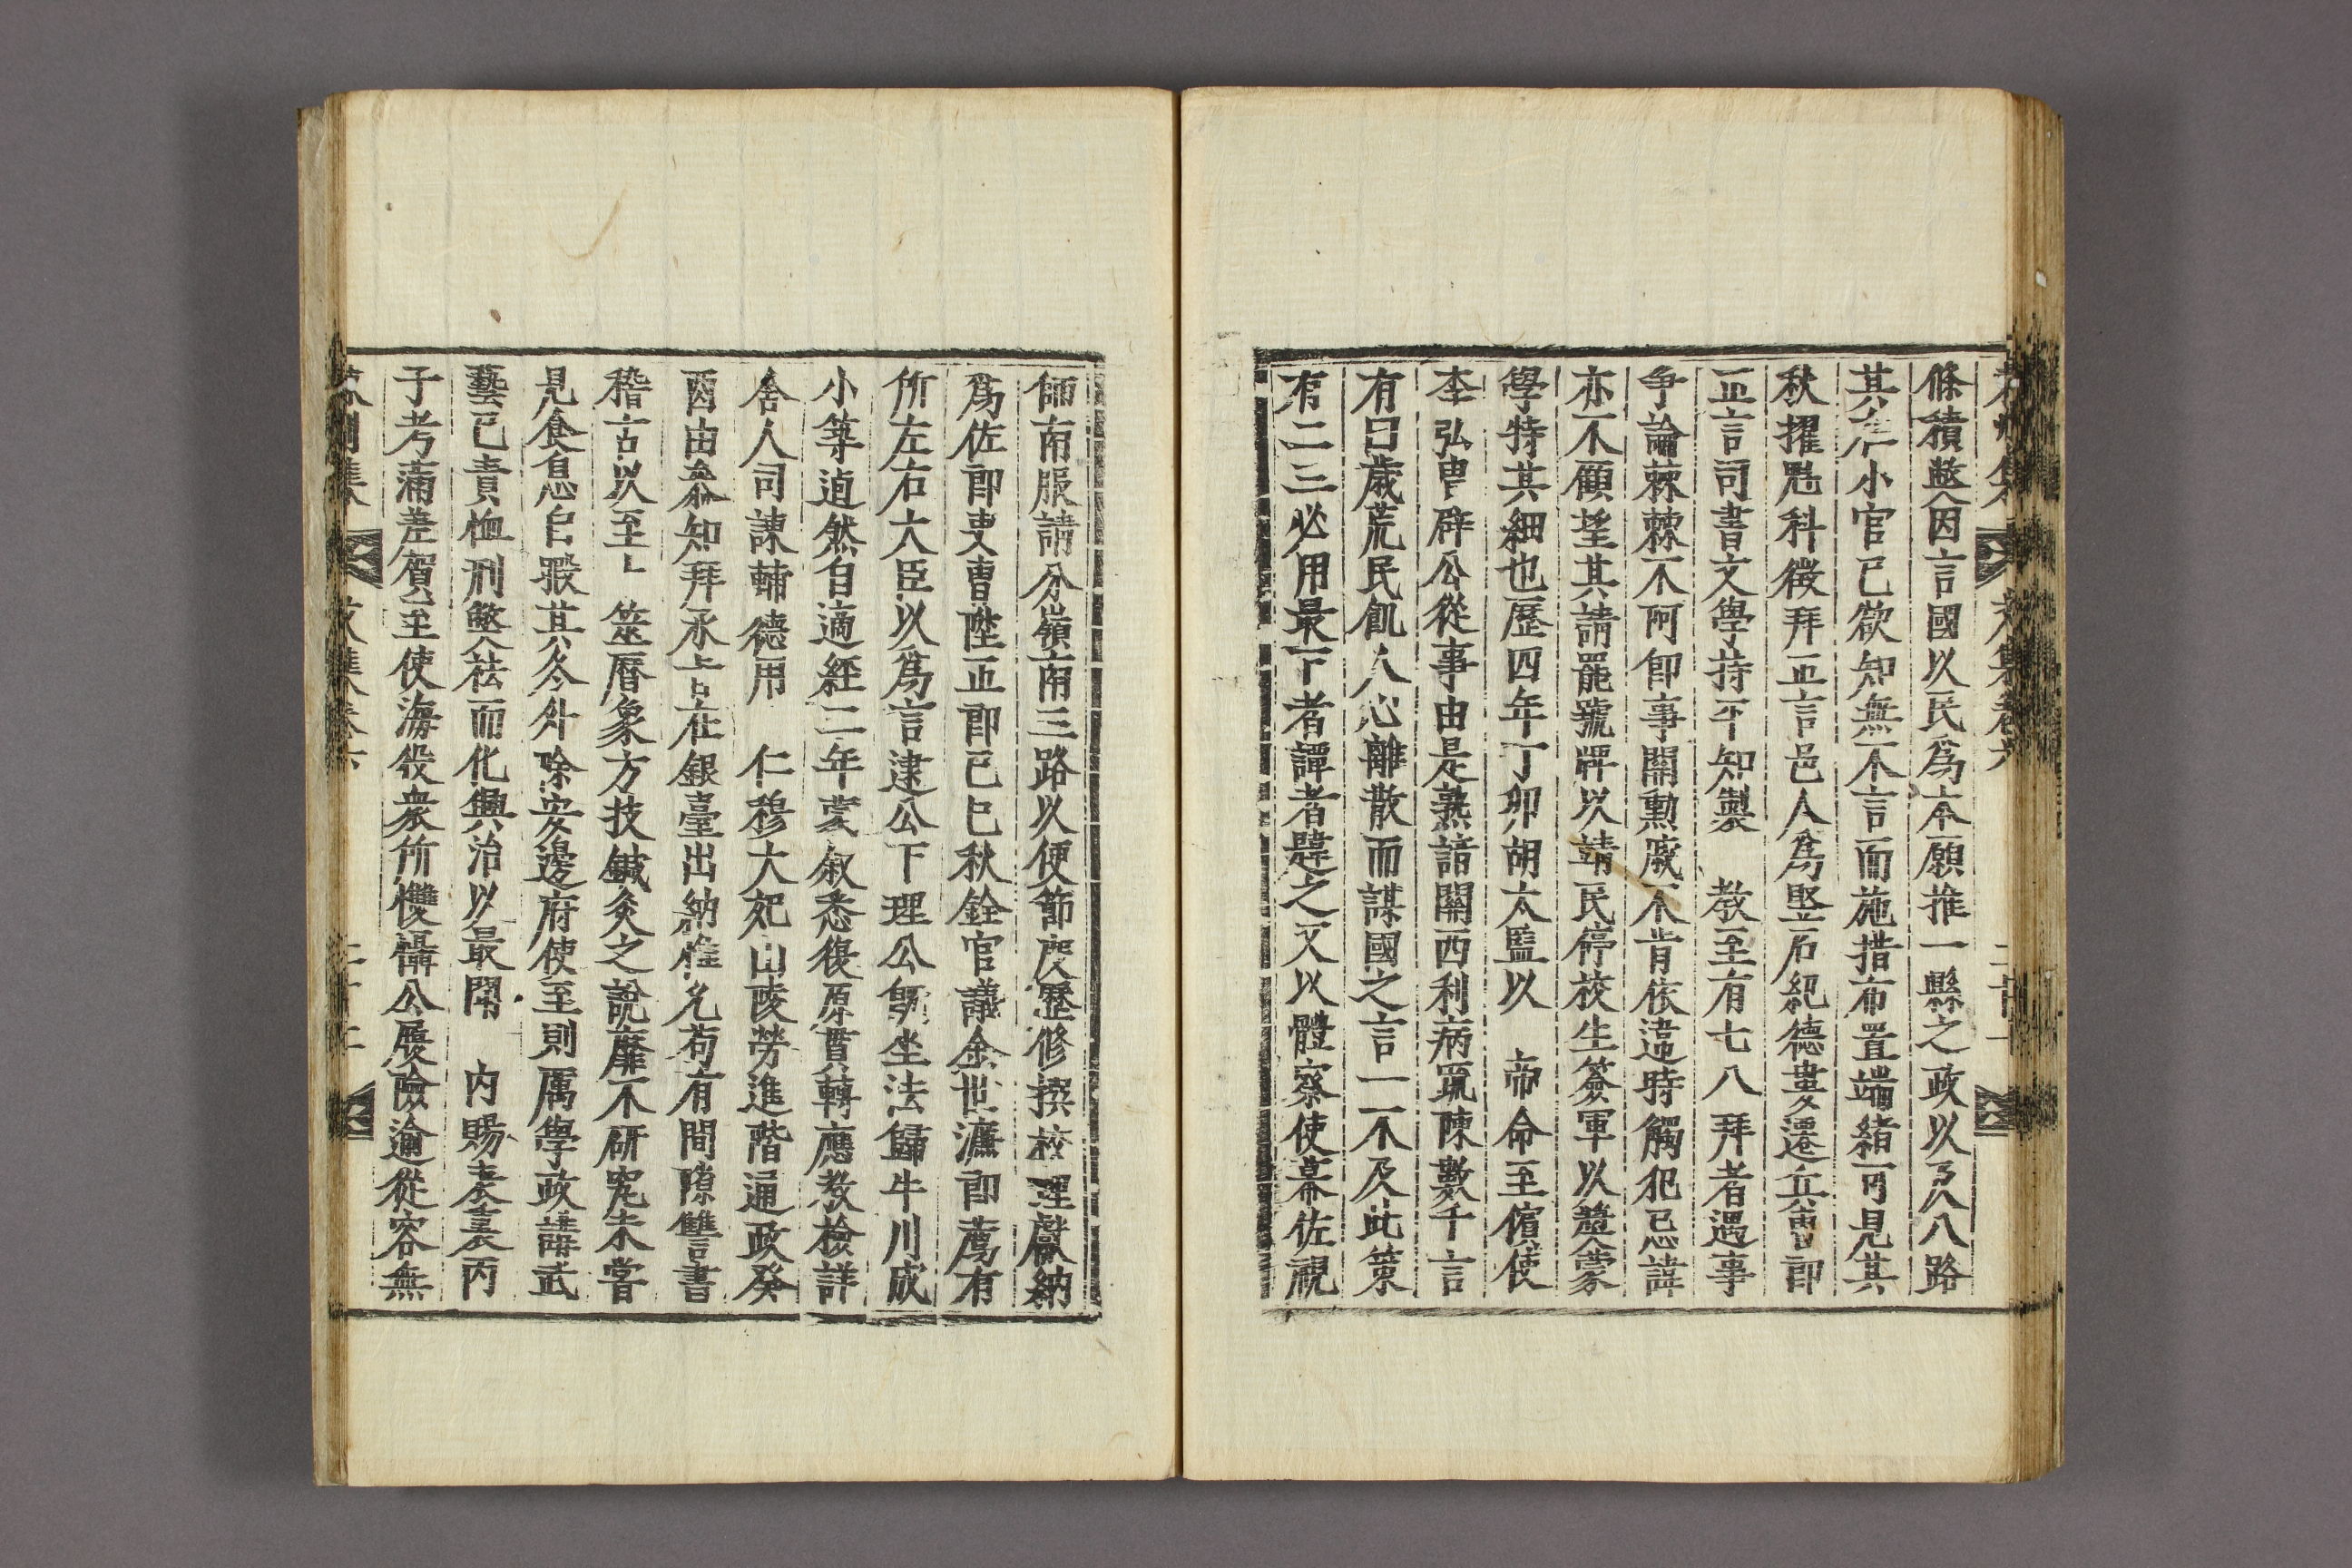 條積弊因言國以民爲本願推一縣之政以及八路
其在小官已欲知無不言而施措布置端緖可見其
秋擢魁科徵拜正言邑人爲竪石紀德婁遷兵曹郞
正言司書文學持平知製 敎至有七八拜者遇事
爭論棘棘不阿卽事關勳戚不肯依違時觸犯忌諱
亦不顧望其請罷號牌以靖民停校生簽軍以奬蒙
學特其細也歷四年丁卯胡太監以 帝命至儐使
李弘冑辟公從事由是熟諳關西利病䟽陳數千言
有曰歲荒民飢人心離散而謀國之言一不及此策
有二三必用最下者譚者韙之又以體察使幕佐視
師南服請分嶺南三路以便節度歷修撰校理獻納
爲佐郞吏曹陞正郞己巳秋銓官議金世濂郞薦有
所左右大臣以爲言逮公下理公㒺坐法歸牛川成
小等逌然自適経二年蒙叙悉復原貫轉應敎檢詳
舍人司諫輔德用 仁穆大妃山陵勞進階通政癸
酉由叅知拜承旨在銀臺出納惟允苟有間隙讐書
稽古以至卜筮曆象方技鍼灸之說靡不硏究未嘗
見食息自暇其冬外除安邊府使至則厲學政講武
藝已責恤刑弊祛而化興治以最聞 内賜表裏丙
子考滿差賀至使海役衆所懼懾公履險逾從容無
文集卷六